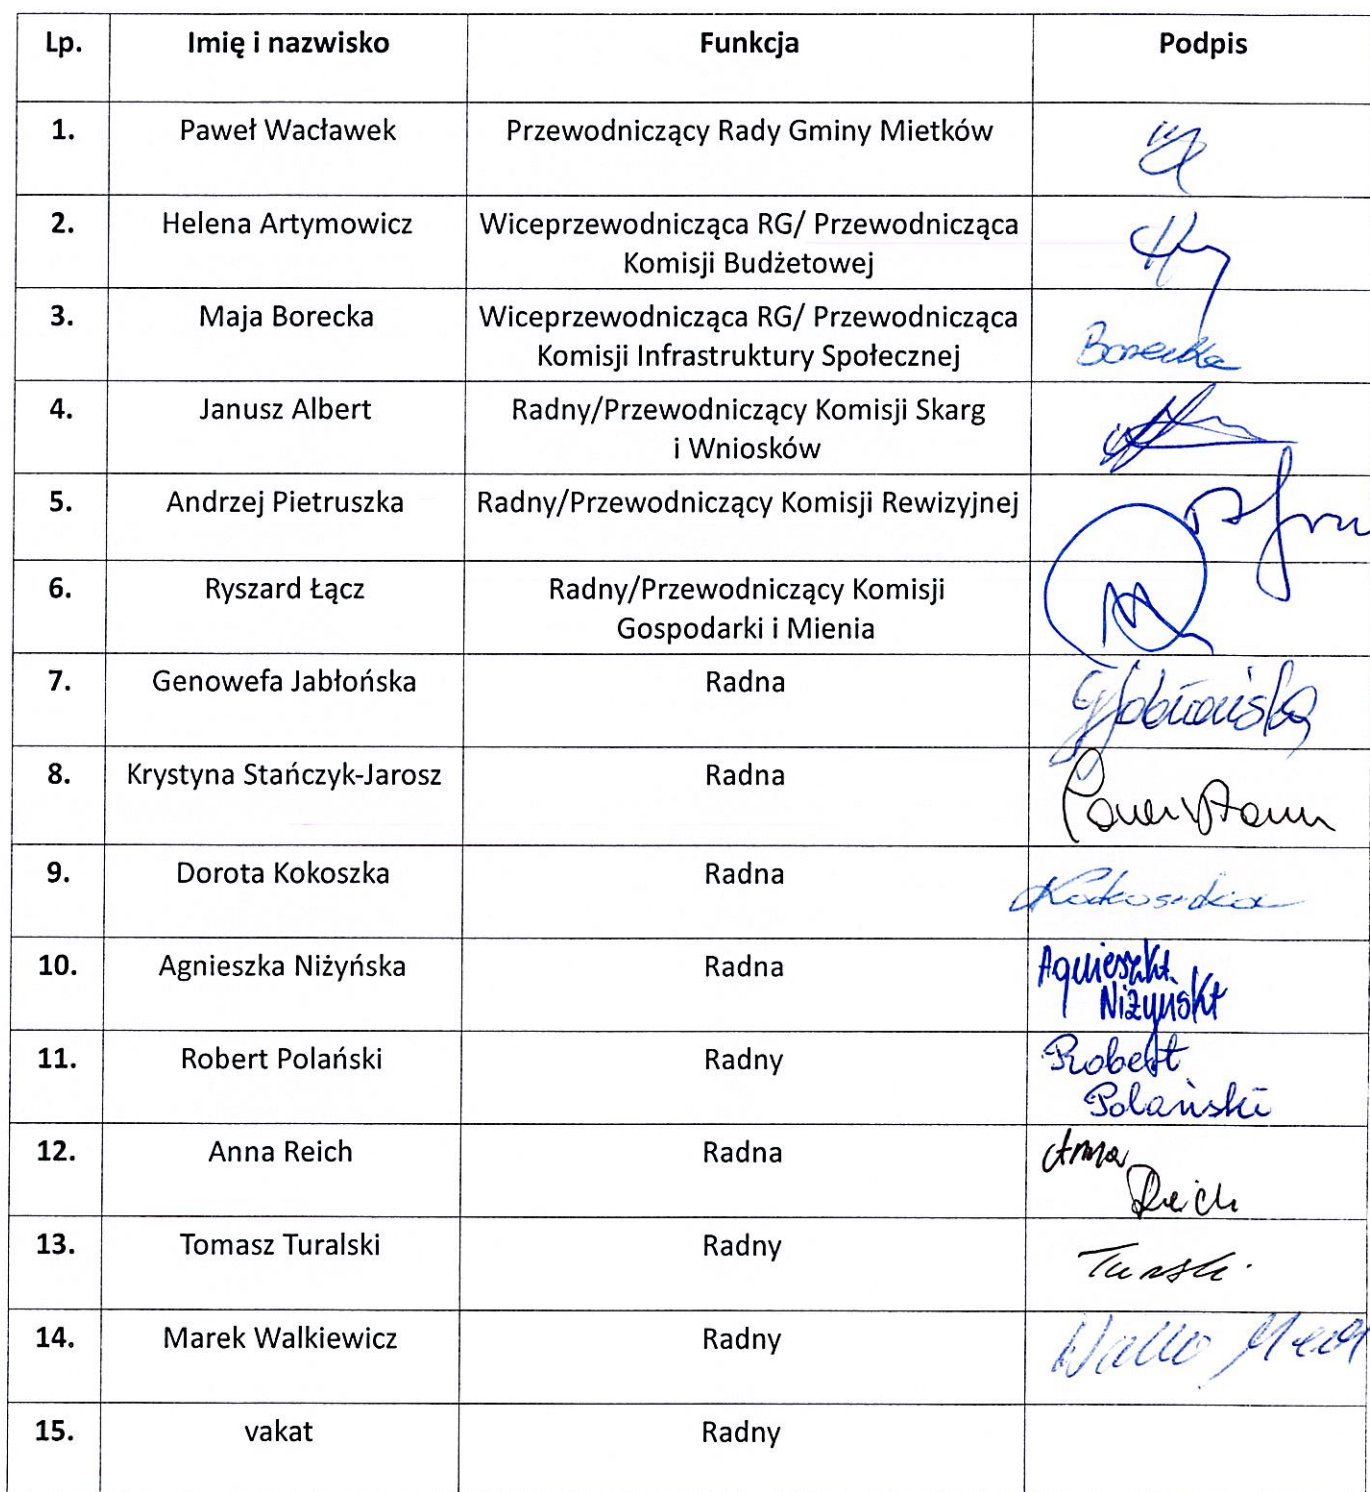 Lp. Imię i nazwisko Funkcja Podpis
1. Paweł Wacławek Przewodniczący Rady Gminy Mietków
2. Helena Artymowicz Wiceprzewodnicząca RG/ Przewodnicząca
Komisji Budżetowej
3. Maja Borecka Wiceprzewodnicząca RG/ Przewodnicząca
Komisji Infrastruktury Społecznej
Borecka
4. Janusz Albert Radny/Przewodniczący Komisji Skarg
i Wniosków
5. Andrzej Pietruszka Radny/Przewodniczący Komisji Rewizyjnej
6. Ryszard Łącz Radny/Przewodniczący Komisji
Gospodarki i Mienia
7. Genowefa Jabłońska Radna GJabłońska
8. Krystyna Stańczyk-Jarosz Radna
9. Dorota Kokoszka Radna Kokoszka
10. Agnieszka Niżyńska Radna Agnieszka
Niżyńska
11. Robert Polański Radny Robert
Polański
12. Anna Reich Radna Anna
Reich
13. Tomasz Turalski Radny
14. Marek Walkiewicz Radny
15. vakat Radny